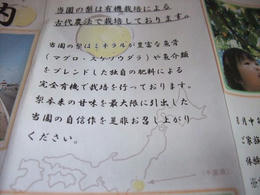 当園の梨は有機栽培による
古代農法で栽培しております。
当園の梨はミネラルが豊富な魚骨
（マグロ・スケゾウダラ）や魚介類
をブレンドした独自の肥料による
完全有機で栽培を行っております。
梨本来の甘味を最大限に引出した
当園の自信作を是非お召し上がり
ください。
（千葉県）
内
8月中
ご家族
体験